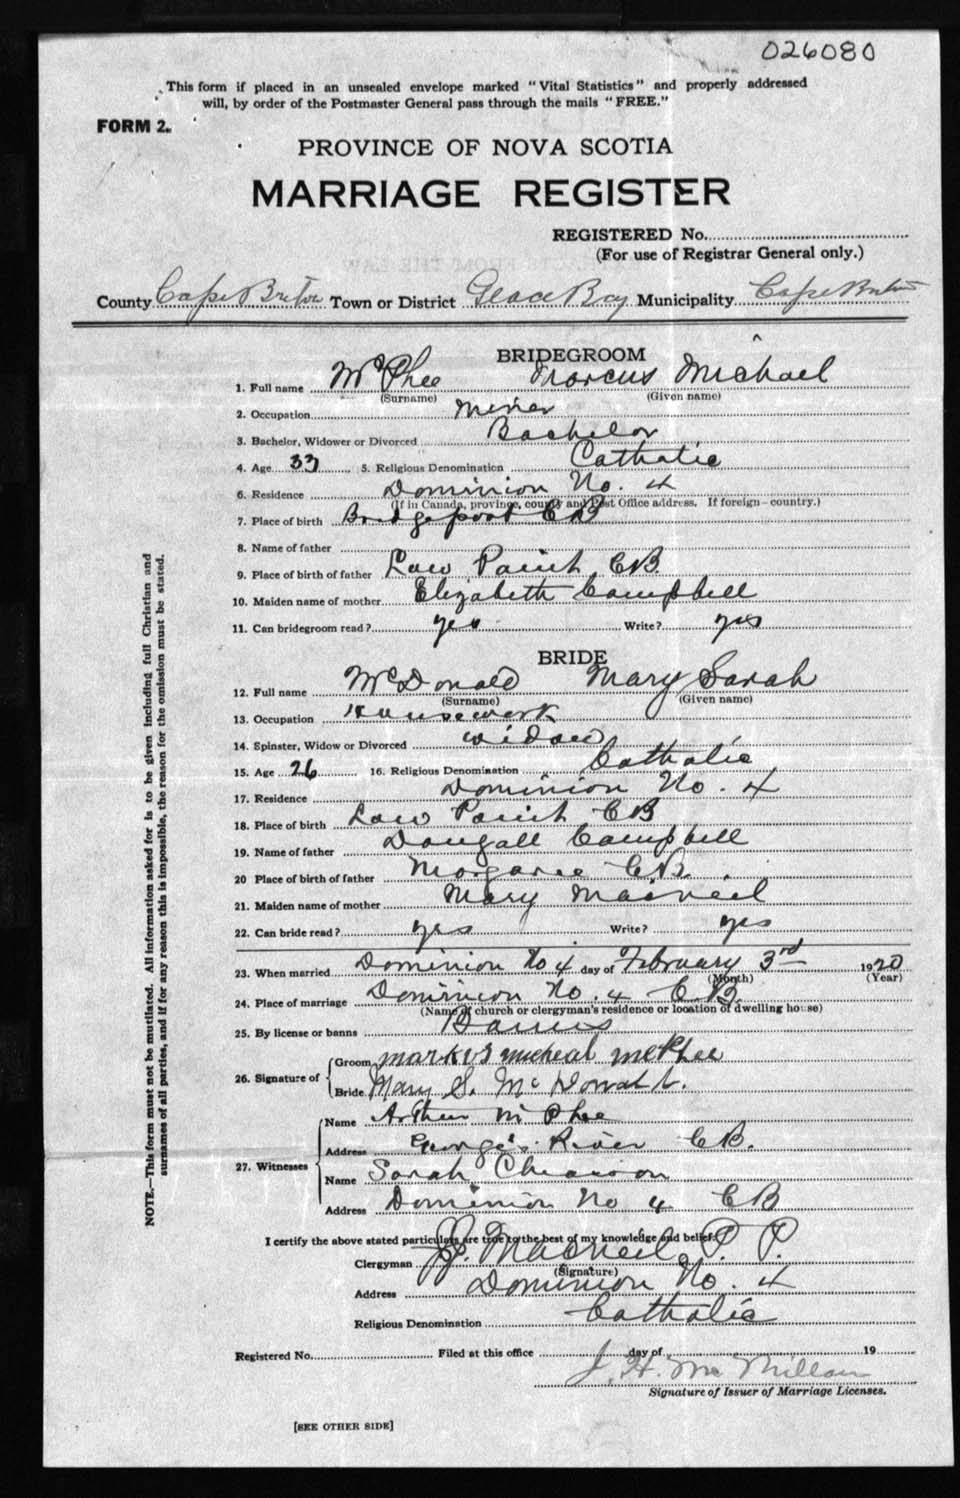 026080
This form if placed in an unsealed envelope marked "Vital Statistics" and properly addressed
will, by order of the Postmaster General pass through the mails "FREE."
FORM 2.
PROVINCE OF NOVA SCOTIA
MARRIAGE REGISTER
REGISTERED No.
(For use of Registrar General only.)
County Cape Breton Town or District Glace Bay Municipality Cape Breton
BRIDEGROOM
1. Full name McPhee Marcus Michael
(Surname) (Given name)
2. Occupation Miner
3. Bachelor, Widower or Divorced Bachelor
4. Age 33 5. Religious Denomination Catholic
6. Residence Dominion No. 4
(If in Canada, province, county and Post Office address. If foreign—country.)
7. Place of birth Bridgeport CB
8. Name of father
9. Place of birth of father Low Point CB
10. Maiden name of mother Elizabeth Campbell
11. Can bridegroom read? yes Write? yes
BRIDE
12. Full name McDonald Mary Sarah
(Surname) (Given name)
13. Occupation Housework
14. Spinster, Widow or Divorced widow
15. Age 26 16. Religious Denomination Catholic
17. Residence Dominion No. 4
18. Place of birth Low Point CB
19. Name of father Dougall Campbell
20 Place of birth of father Margaree CB
21. Maiden name of mother Mary MacNeil
22. Can bride read? yes Write? yes
23. When married Dominion No 4 day of February 3rd 1920
(Month) (Year)
24. Place of marriage Dominion No. 4 C.B.
(Name of church or clergyman's residence or location of dwelling house)
25. By license or banns Banns
26. Signature of Groom markus micheal mcPhee
Bride Mary S. McDonald
27. Witnesses Name Arthur McPhee
Address George's River CB.
Name Sarah Chiasson
Address Dominion No 4 CB
I certify the above stated particulars are true to the best of my knowledge and belief.
Clergyman MacNeil P. P.
(Signature)
Address Dominion No. 4
Religious Denomination Catholic
Registered No. Filed at this office day of 19
J. H. McMillan
Signature of Issuer of Marriage Licenses.
[SEE OTHER SIDE]
NOTE.—This form must not be mutilated. All information asked for is to be given including full Christian and
surnames of all parties, and if for any reason this is impossible, the reason for the omission must be stated.